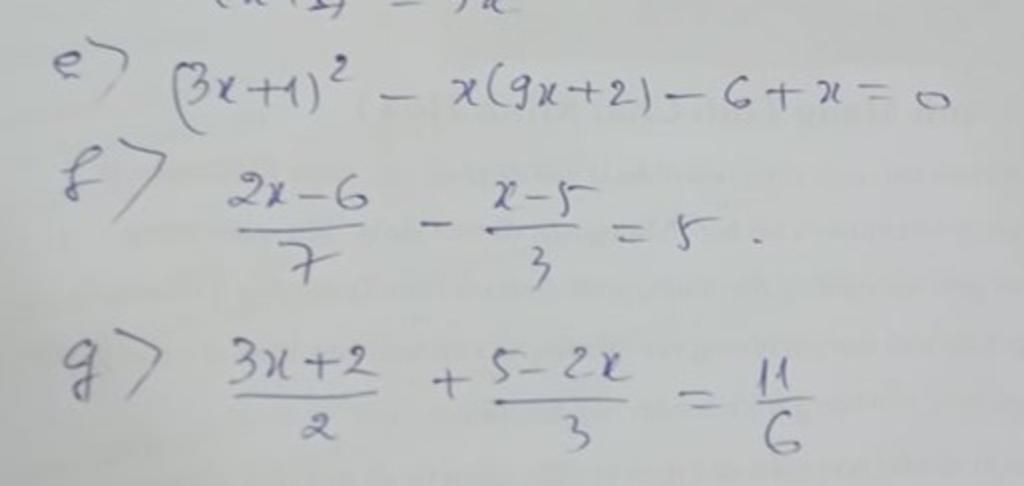 e) (3x+1)² - x(9x+2) - 6 + x = 0
f) \frac{2x-6}{7} - \frac{x-5}{3} = 5.
g) \frac{3x+2}{2} + \frac{5-2x}{3} = \frac{11}{6}